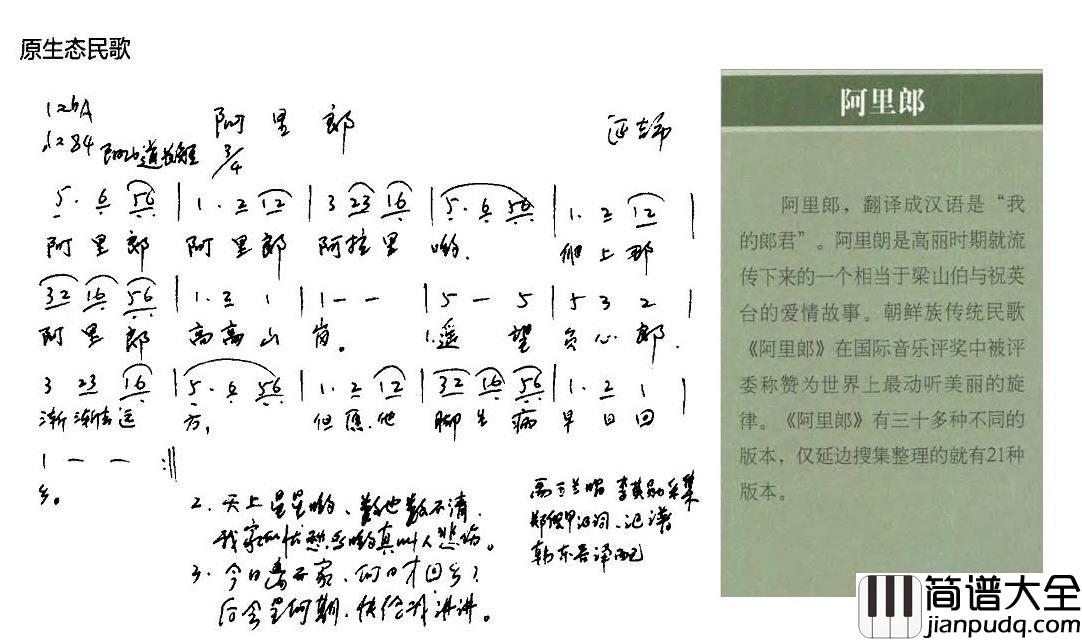 原生态民歌
1=bA
阿里郎
3/4
5· 6 56 | 1· 2 12 | 3 23 16 | 5· 6 56 | 1· 2 12 |
阿里郎 阿里郎 阿拉里 哟. 爬上那
32 16 56 | 1· 2 1 | 1 - - | 5 - 5 | 5 3 2 |
阿里郎 高高山岗。 1.遥望负心郎.
3 23 16 | 5· 6 56 | 1· 2 12 | 32 16 56 | 1· 2 1 |
渐渐去远方, 但愿他脚生病早日回
1 - - :||
乡。
2. 天上星星哟、数也数不清.
我家的忧愁哟真叫人悲伤。
3. 今日离开家.何日才回乡?
后会是何期.快给我讲讲。
采集
记谱
译配
阿里郎
阿里郎，翻译成汉语是“我
的郎君”。阿里朗是高丽时期就流
传下来的一个相当于梁山伯与祝英
台的爱情故事。朝鲜族传统民歌
《阿里郎》在国际音乐评奖中被评
委称赞为世界上最动听美丽的旋
律。《阿里郎》有三十多种不同的
版本，仅延边搜集整理的就有21种
版本。
简谱大全
jianpudq.com